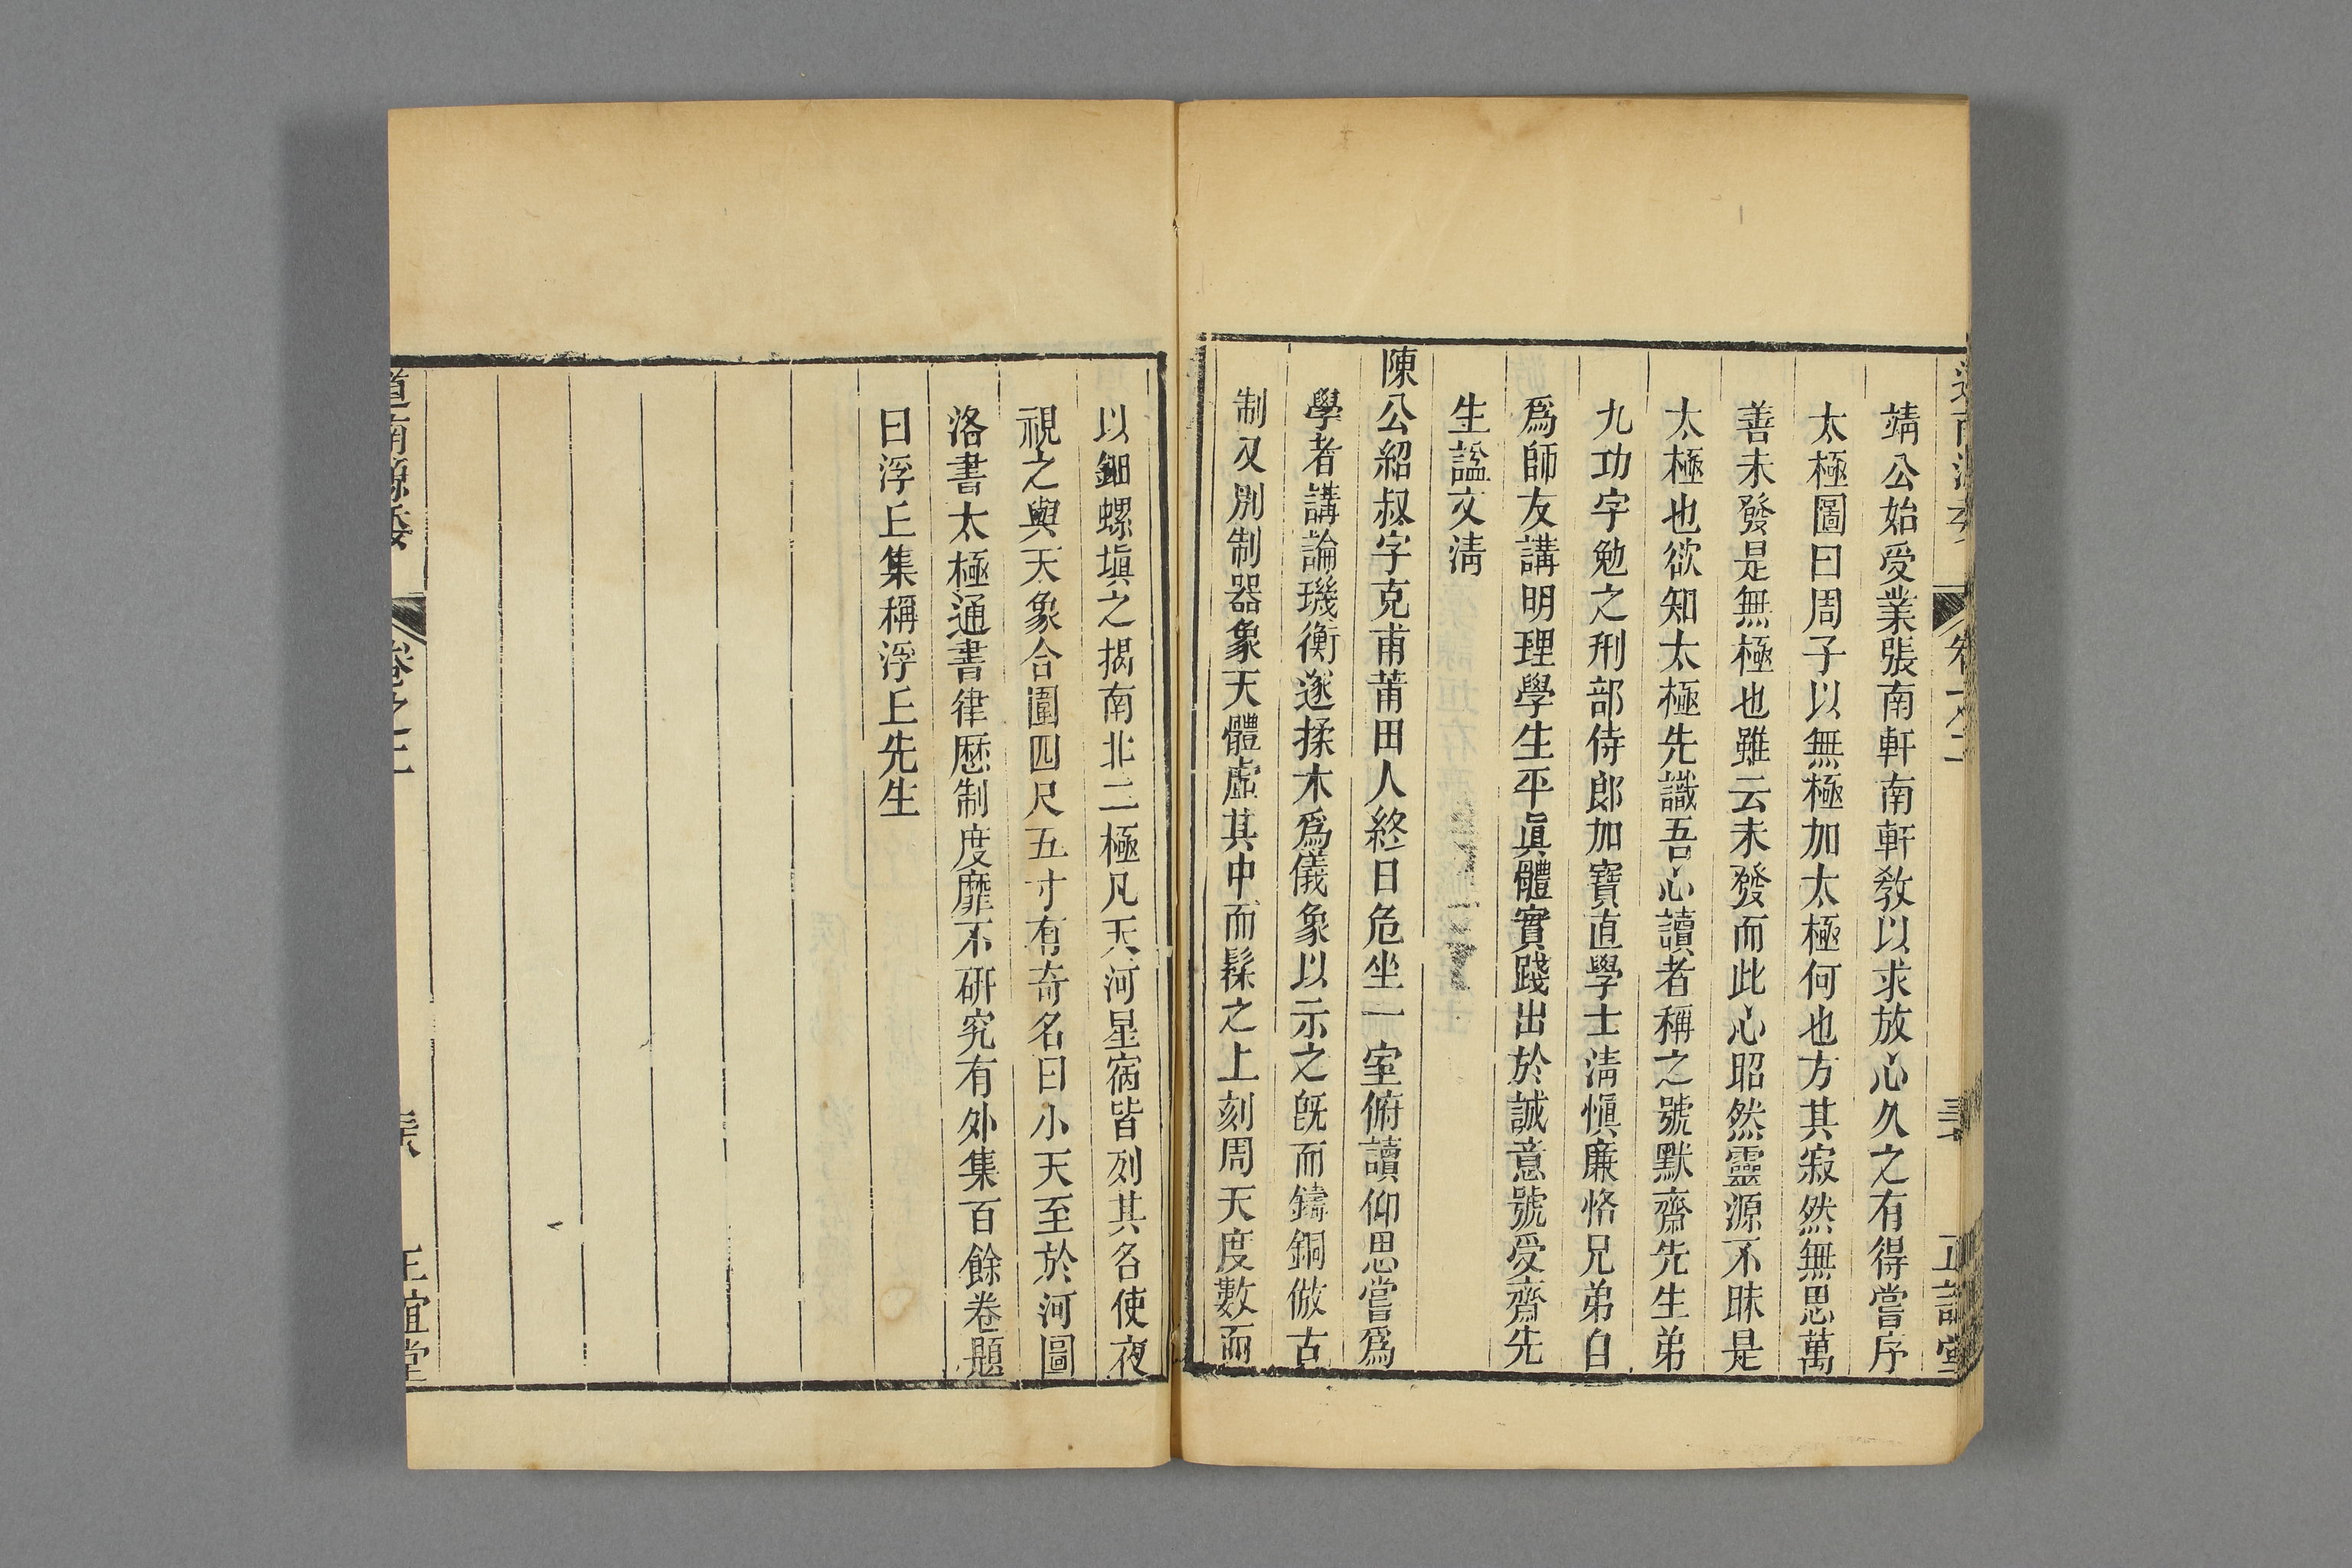 靖公始受業張南軒南軒敎以求放心久之有得嘗序
太極圖曰周子以無極加太極何也方其寂然無思萬
善未發是無極也雖云未發而此心昭然靈源不昧是
太極也欲知太極先識吾心讀者稱之號默齋先生弟
九功字勉之刑部侍郎加寶直學士淸愼廉恪兄弟自
爲師友講明理學生平眞體實踐出於誠意號受齋先
生謚文淸
陳公紹叔字克甫莆田人終日危坐一室俯讀仰思嘗爲
學者講論璣衡遂揉木爲儀象以示之旣而鑄銅倣古
制又別制器象天體虛其中而髹之上刻周天度數而
以鈿螺塡之揭南北二極凡天河星宿皆列其名使夜
視之與天象合圍四尺五寸有奇名曰小天至於河圖
洛書太極通書律歷制度靡不硏究有外集百餘卷題
曰浮丘集稱浮丘先生
道南源委
卷之三
正誼堂